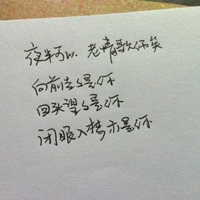 夜半可以 老情歌你笑
向前走是你
回头望是你
闭眼入梦亦是你